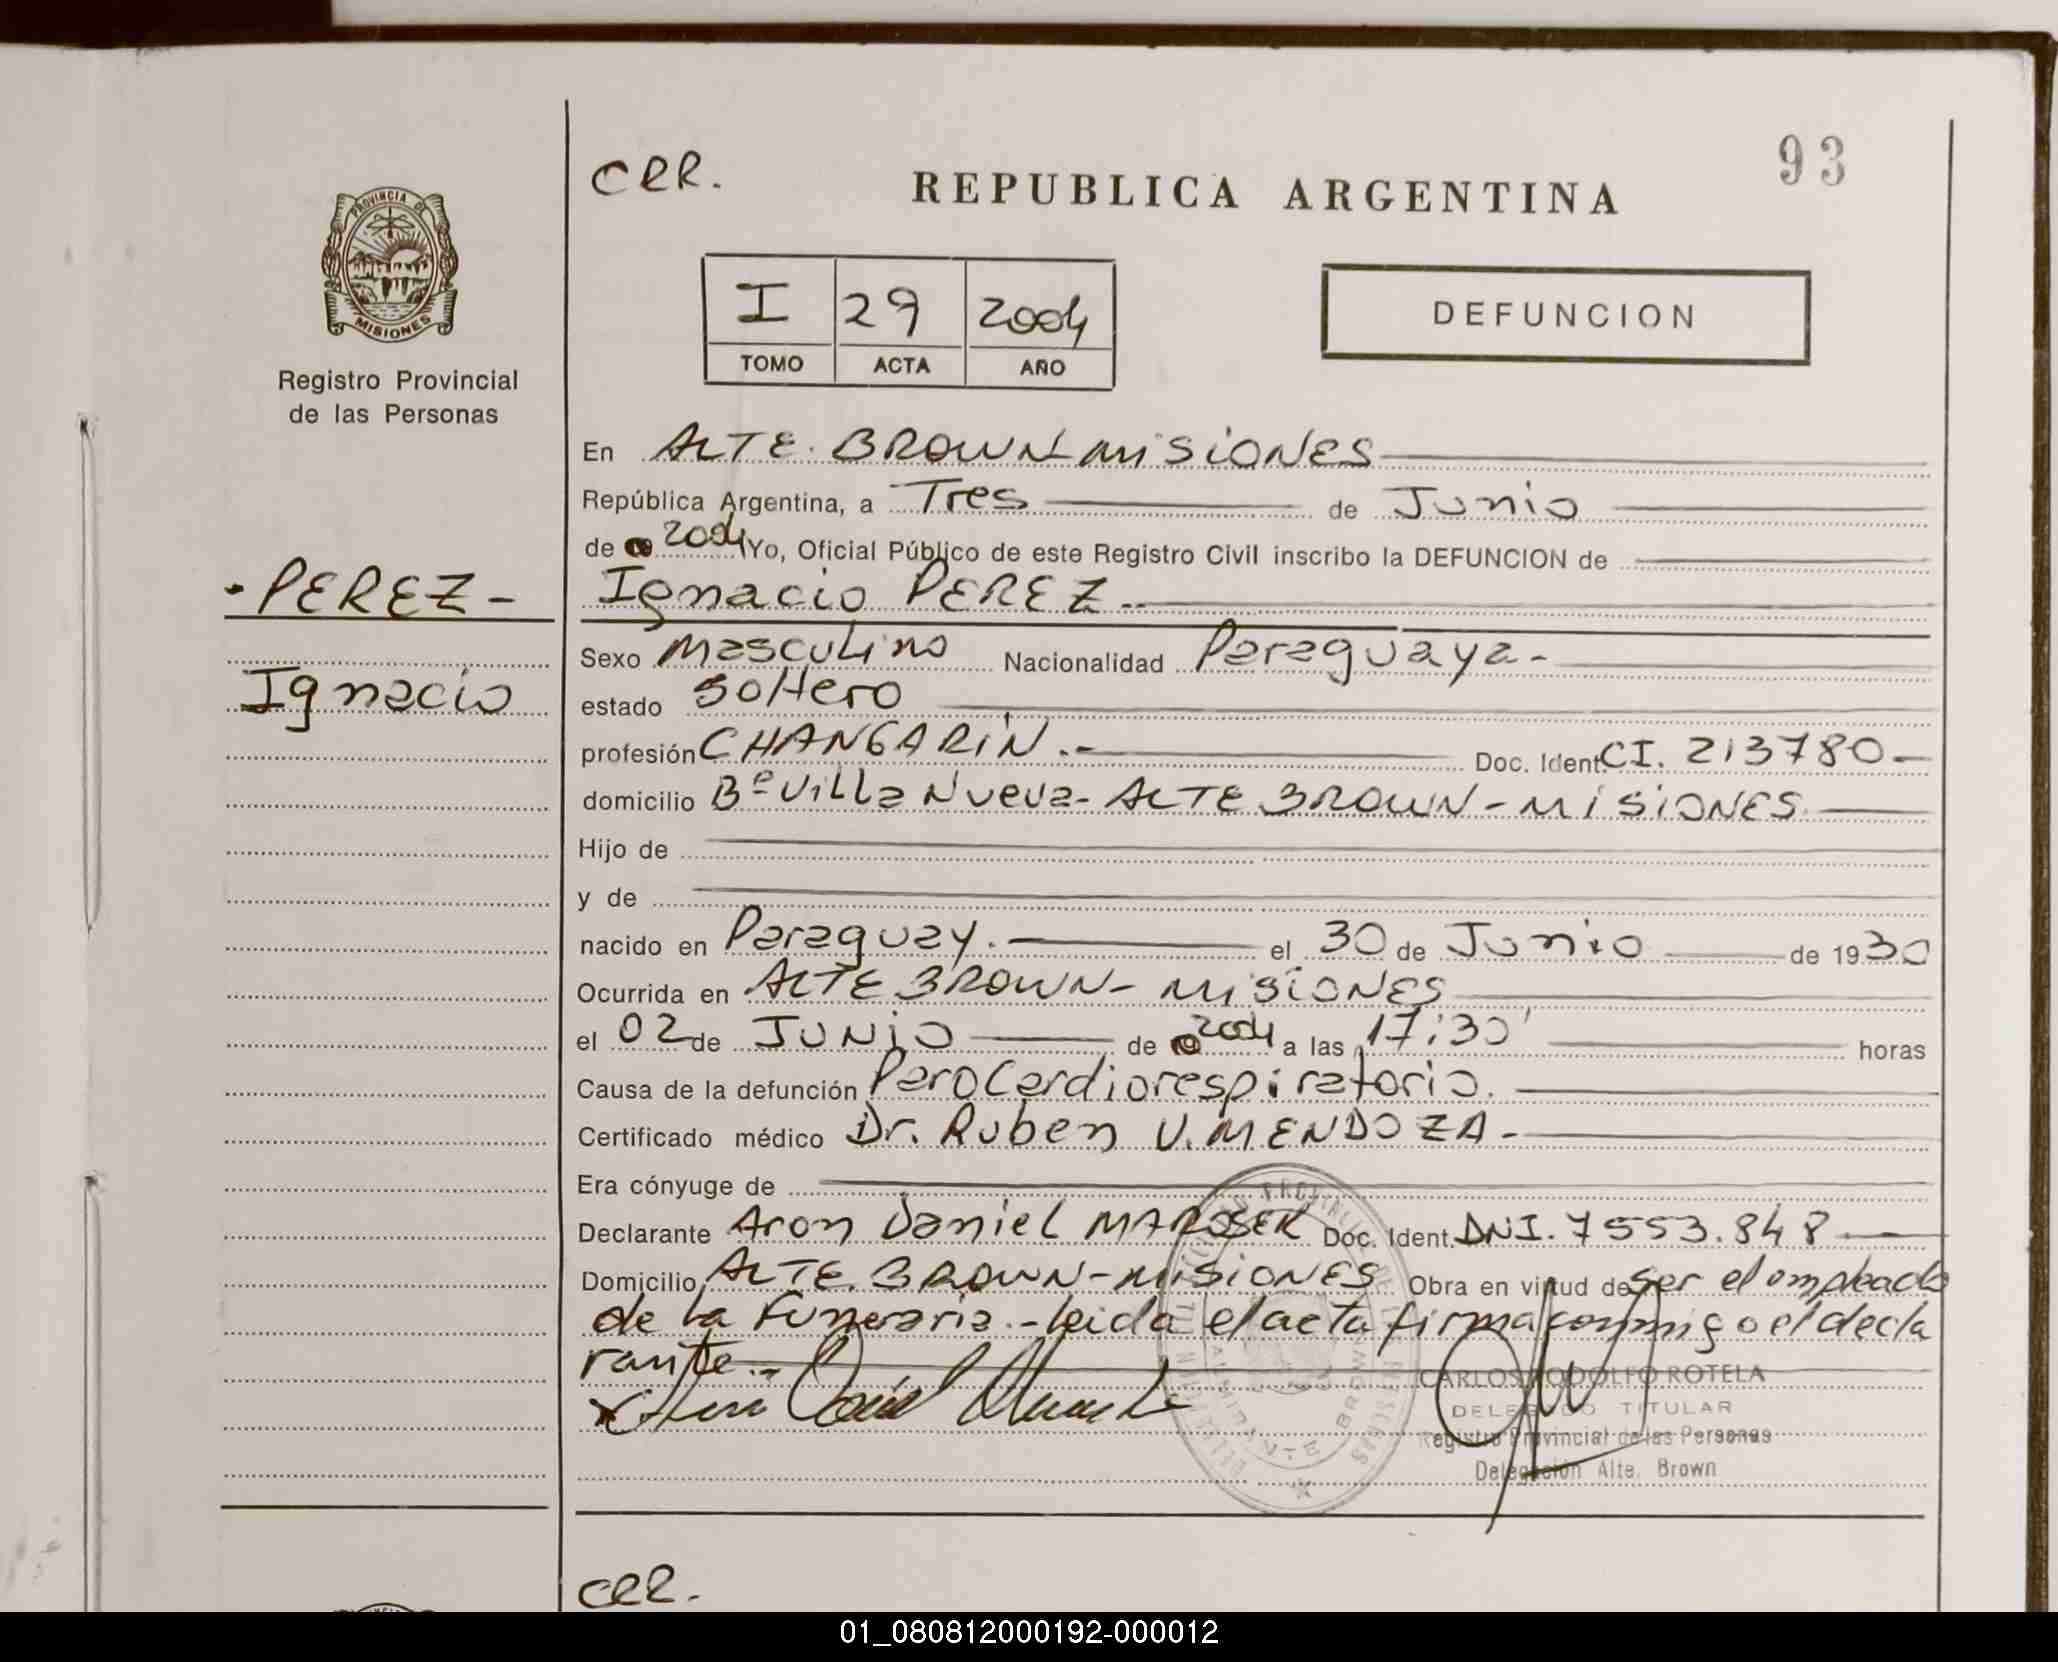 93
CER.
REPUBLICA ARGENTINA
PROVINCIA DE
MISIONES
Registro Provincial
de las Personas
I 29 2004
TOMO ACTA AÑO
DEFUNCION
En ALTE. BROWN MISIONES
República Argentina, a Tres de Junio
de 2004 Yo, Oficial Público de este Registro Civil inscribo la DEFUNCION de
- PEREZ -
Ignacio PEREZ.-
Ignacio
Sexo Masculino Nacionalidad Paraguaya-
estado Soltero
profesión CHANGARIN.- Doc. Ident. CI. 213780-
domicilio Bº Villa Nueva- ALTE BROWN - MISIONES
Hijo de
y de
nacido en Paraguay. el 30 de Junio de 1930
Ocurrida en ALTE BROWN- MISIONES
el 02 de JUNIO de 2004 a las 17:30' horas
Causa de la defunción ParoCardiorespiratorio.
Certificado médico Dr. Ruben V. MENDOZA-
Era cónyuge de
Declarante Aron Daniel Doc. Ident. DNI. 7553.848
Domicilio ALTE. BROWN-MISIONES Obra en virtud de Ser el empleado
de la Funeraria.- leida el acta firma conmigo el decla
rante.-
CARLOS RODOLFO ROTELA
DELEGADO TITULAR
Registro Provincial de las Personas
Delegación Alte. Brown
CER.
01_080812000192-000012